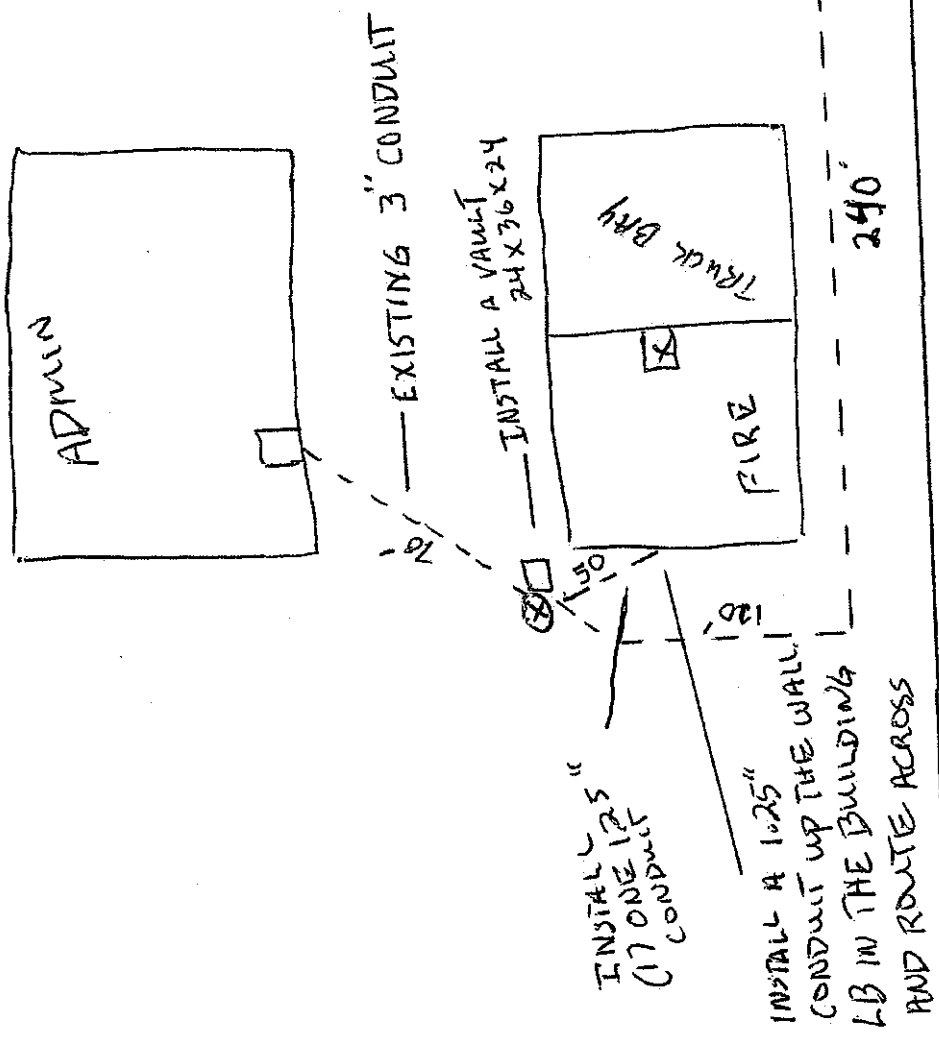 ADMIN
EXISTING 3" CONDUIT
70'
INSTALL A VAULT
24X36X24
X
50
X
TRUCK BAY
FIRE
120'
240'
INSTALL
(1) ONE 1.25"
CONDUIT
INSTALL A 1.25"
CONDUIT UP THE WALL.
LB IN THE BUILDING
AND ROUTE ACROSS